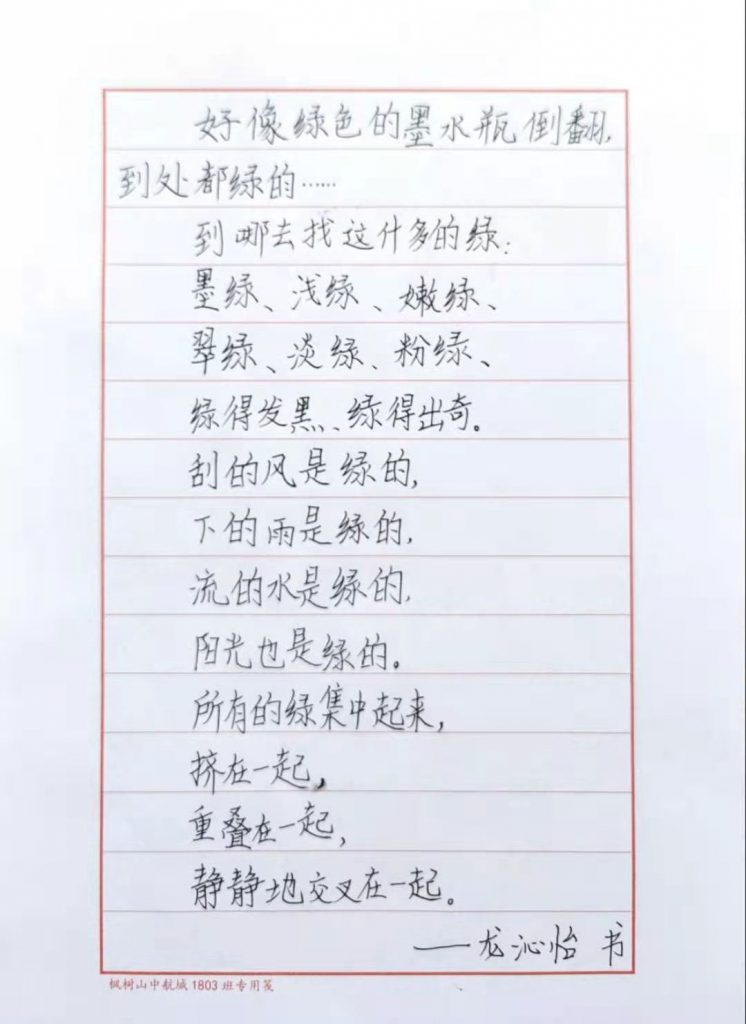 好像绿色的墨水瓶倒翻,
到处都绿的……
到哪去找这什多的绿:
墨绿、浅绿、嫩绿、
翠绿、淡绿、粉绿、
绿得发黑、绿得出奇。
刮的风是绿的,
下的雨是绿的,
流的水是绿的,
阳光也是绿的。
所有的绿集中起来,
挤在一起,
重叠在一起,
静静地交叉在一起。
——龙沁怡 书
枫树山中航城1803班专用笺